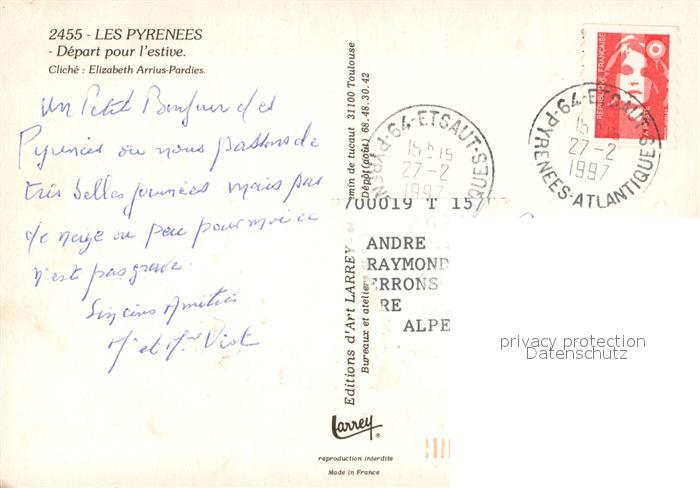 2455 - LES PYRENEES
- Départ pour l'estive.
Cliché : Elizabeth Arrius-Pardies.
Un Petit Bonjour des
Pyrénées ou nous passons de
très belles journées mais pas
de neige ou peu pour moi ce
n'est pas grave.
Sincères Amitiés
Mr et Mme Viot
Editions d'Art LARREY -
min de tucaut 31100 Toulouse
Bureaux et ateliers
Dépôt (août) 68.48.30.42
Larrey®
reproduction interdite
Made in France
64-ETSAUT
15H15
27-2
1997
PYRENEES
REPUBLIQUE FRANÇAISE
64-ETSAUT
15
27-2
1997
PYRENEES-ATLANTIQUES
700019 T 15/
ANDRE
RAYMOND
ERRONS
RE
ALPE
privacy protection
Datenschutz